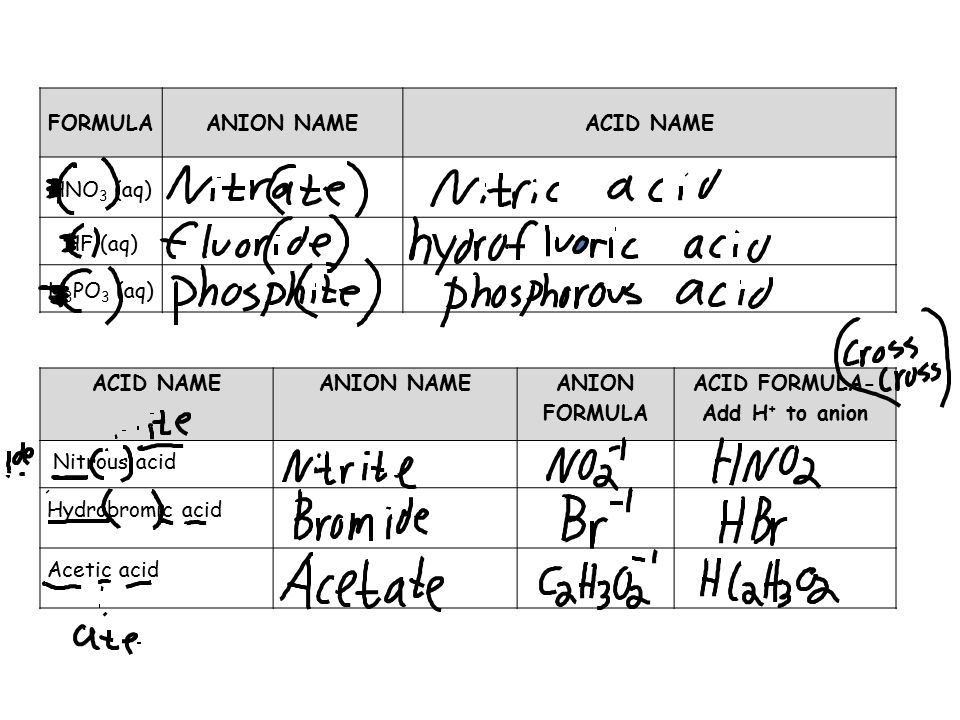 FORMULA ANION NAME ACID NAME
HNO3 (aq) Nitrate Nitric acid
HF (aq) fluoride hydrofluoric acid
H3PO3 (aq) phosphite phosphorous acid
(Cross
Cross)
ACID NAME ANION NAME ANION FORMULA ACID FORMULA- Add H+ to anion
ite
ide
Nitrous acid Nitrite NO2-1 HNO2
Hydrobromic acid Bromide Br-1 HBr
Acetic acid Acetate C2H3O2-1 HC2H3O2
ate